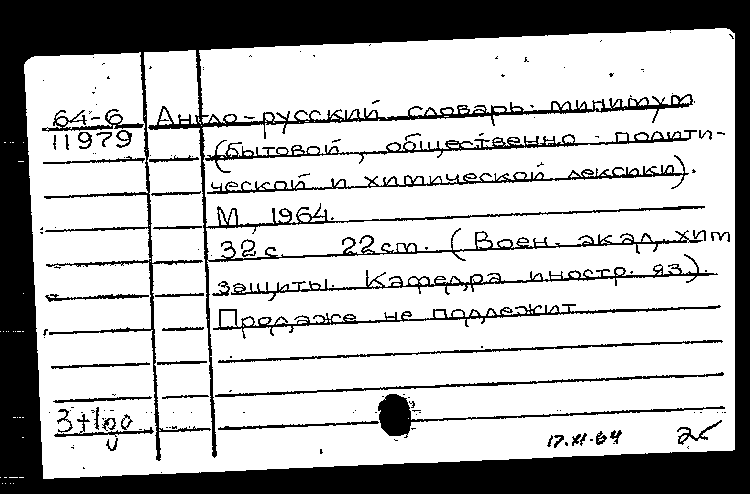 64-6 Англо-русский словарь-минимум
11979 (бытовой, общественно-полити-
ческой и химической лексики).
М., 1964.
32 с. 22 см. (Воен. акад. хим
защиты. Кафедра иностр. яз.).
Продаже не подлежит
17.XI.64 25